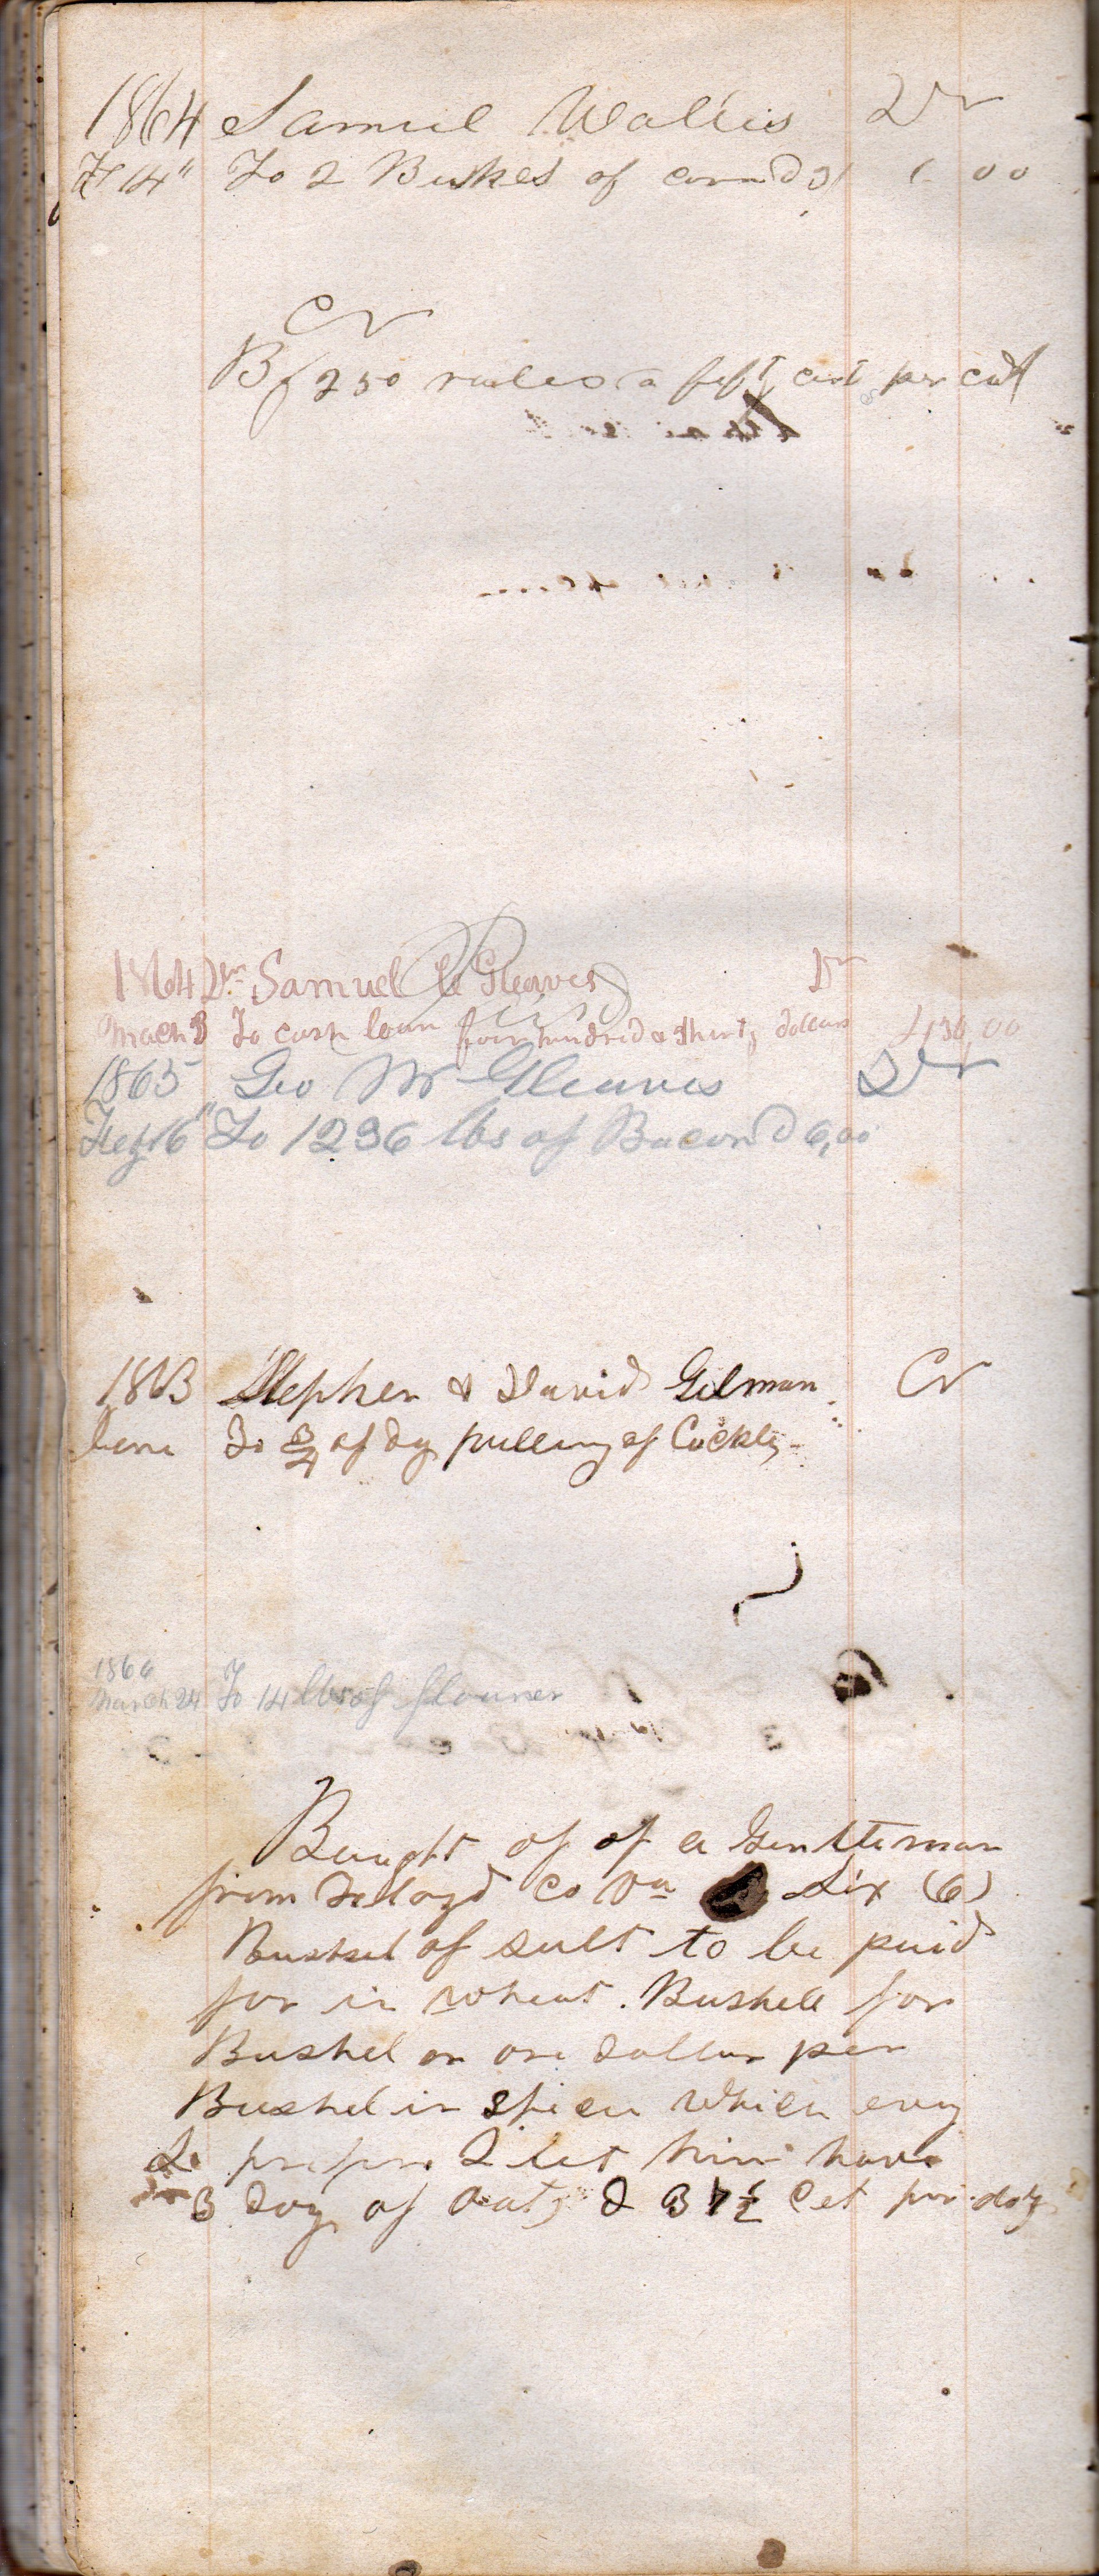 1864 Samuel Wallis Dr
14" To 2 Bushes of corn 1 00
Cr
By 250 railes a fifty cent per
1864 Samuel Gleaves Dr
March 3 To cash loan four hundred & thirty dollars 430,00
1865 Geo W Gleaves Dr
To 1236 lbs of Bacon 6,00
1863 Stephen & David Gilman Cr
June To 3/4 of dy pulling of Cockly
1866
March 24 To 14 lbs of
Baught of of a Gentleman
from Co Va Six (6)
Bushel of salt to be paid
for in wheat. Bushell for
Bushel or one dollar per
Bushel in which evry
I let him have
3 Doz of Oats 37 1/2 Cet per doz